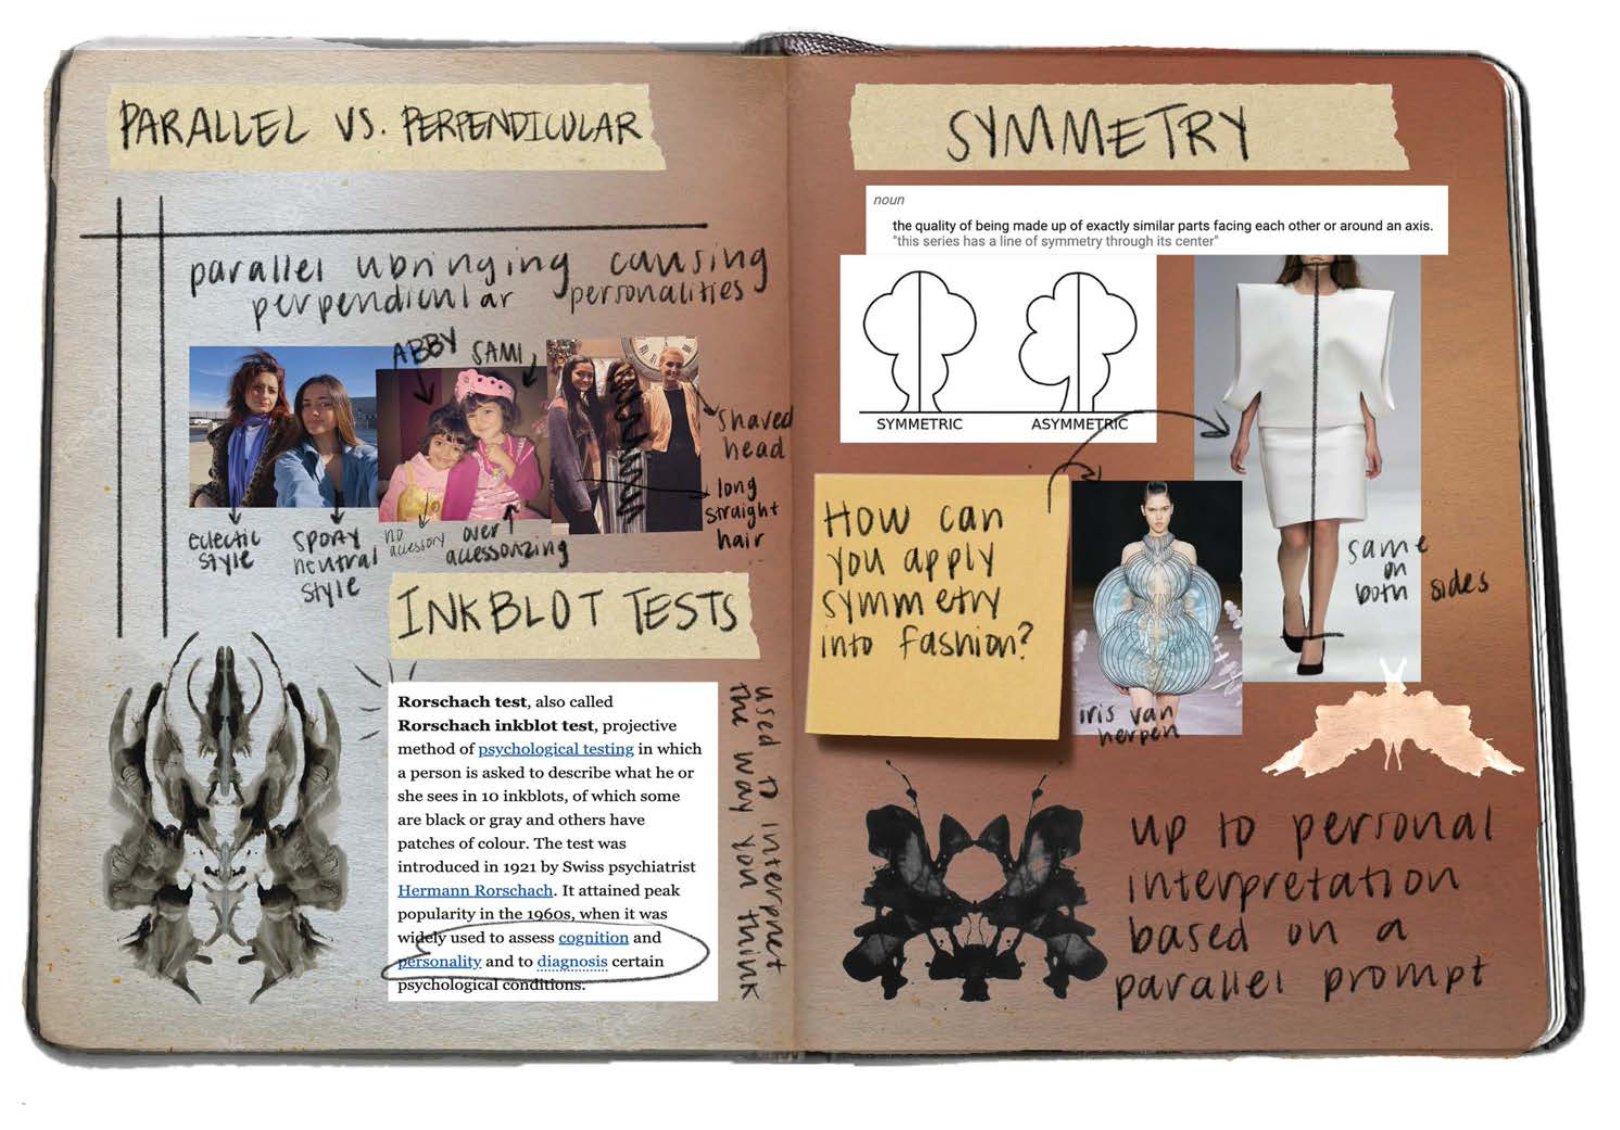 PARALLEL VS. PERPENDICULAR
parallel ubringing causing
perpendicular personalities
ABBY
SAMI
shaved
head
long
straight
hair
eclectic
style
sporty
neutral
style
no
accessory
over
accessorizing
INKBLOT TESTS
Rorschach test, also called
Rorschach inkblot test, projective
method of psychological testing in which
a person is asked to describe what he or
she sees in 10 inkblots, of which some
are black or gray and others have
patches of colour. The test was
introduced in 1921 by Swiss psychiatrist
Hermann Rorschach. It attained peak
popularity in the 1960s, when it was
widely used to assess cognition and
personality and to diagnosis certain
psychological conditions.
used to interpret
the way you think
SYMMETRY
noun
the quality of being made up of exactly similar parts facing each other or around an axis.
"this series has a line of symmetry through its center"
SYMMETRIC
ASYMMETRIC
How can
you apply
symmetry
into fashion?
same
on
both sides
iris van
herpen
up to personal
interpretation
based on a
parallel prompt